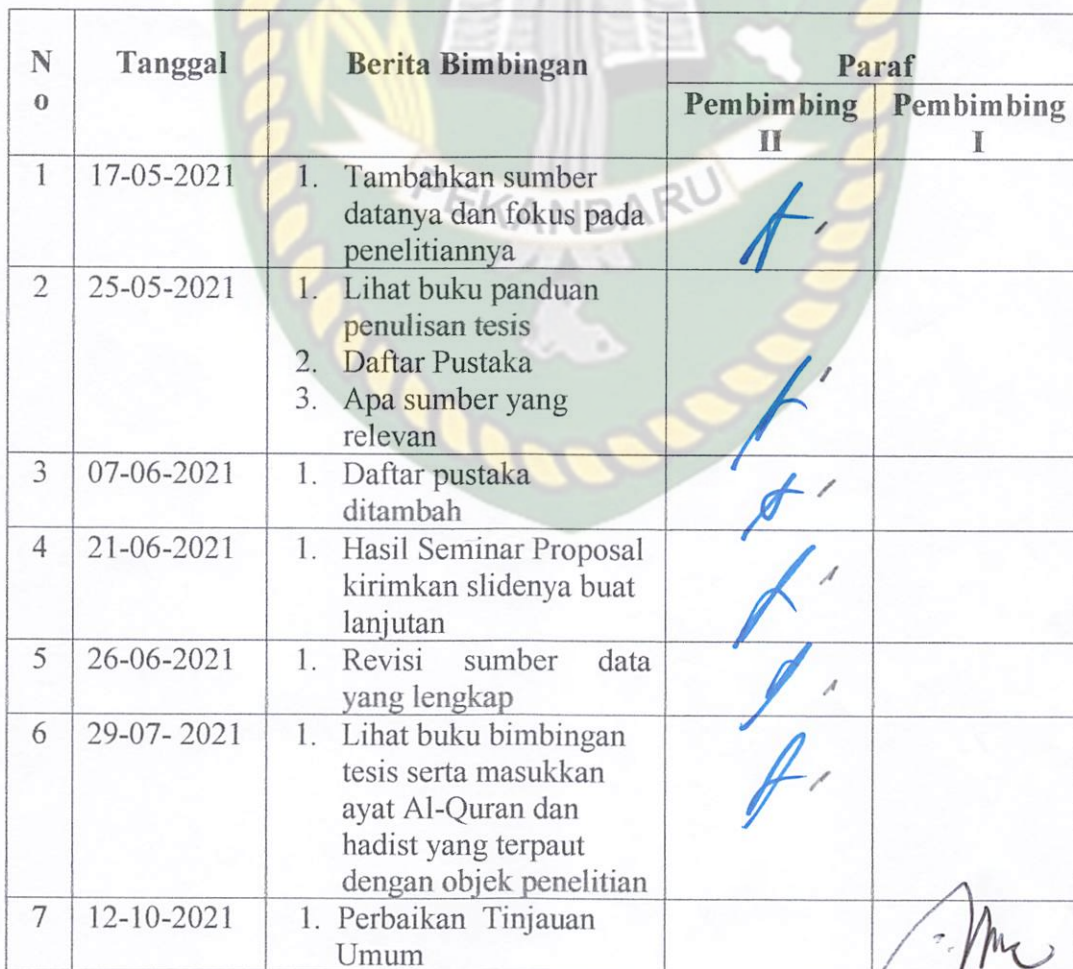 N
o
Tanggal
Berita Bimbingan
Paraf
Pembimbing
II
Pembimbing
I
PEKANBARU
1
17-05-2021
1. Tambahkan sumber
datanya dan fokus pada
penelitiannya
2
25-05-2021
1. Lihat buku panduan
penulisan tesis
2. Daftar Pustaka
3. Apa sumber yang
relevan
3
07-06-2021
1. Daftar pustaka
ditambah
4
21-06-2021
1. Hasil Seminar Proposal
kirimkan slidenya buat
lanjutan
5
26-06-2021
1. Revisi sumber data
yang lengkap
6
29-07- 2021
1. Lihat buku bimbingan
tesis serta masukkan
ayat Al-Quran dan
hadist yang terpaut
dengan objek penelitian
7
12-10-2021
1. Perbaikan Tinjauan
Umum